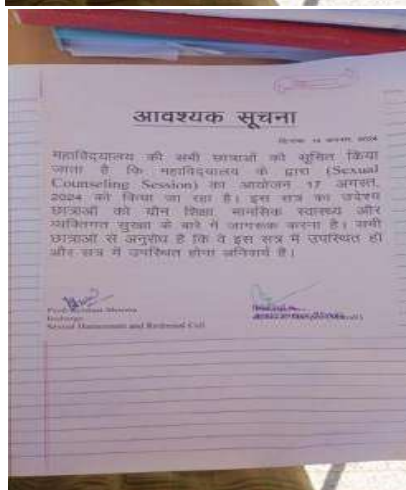 आवश्यक सूचना
दिनांक 14 अगस्त, 2024
महाविद्यालय की सभी छात्राओं को सूचित किया
जाता है कि महाविद्यालय के द्वारा (Sexual
Counseling Session) का आयोजन 17 अगस्त,
2024 को किया जा रहा है। इस सत्र का उद्देश्य
छात्राओं को यौन शिक्षा, मानसिक स्वास्थ्य और
व्यक्तिगत सुरक्षा के बारे में जागरूक करना है। सभी
छात्राओं से अनुरोध है कि वे इस सत्र में उपस्थित हों
और सत्र में उपस्थित होना अनिवार्य है।
Sexual Harassment and Redressal Cell